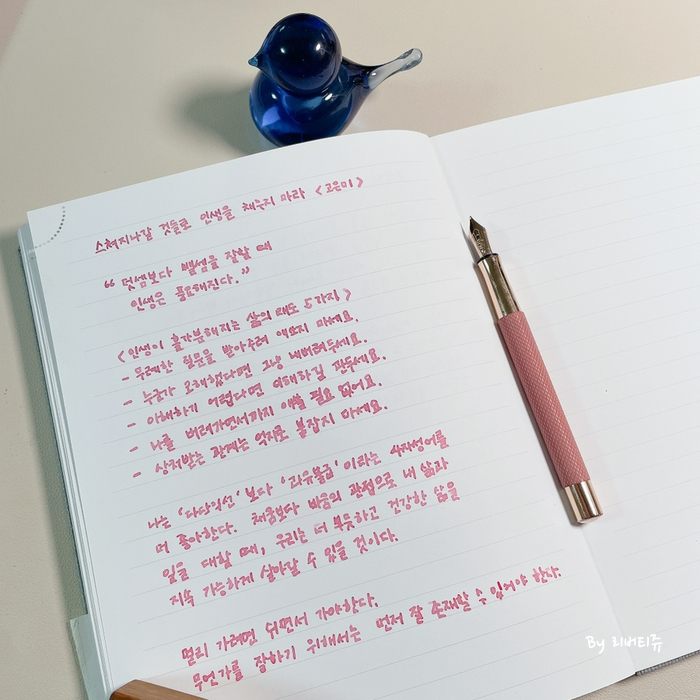 스쳐지나갈 것들로 인생을 채우지 마라 <고은미>
“덧셈보다 뺄셈을 잘할 때
인생은 풍요해진다.”
<인생이 홀가분해지는 삶의 태도 5가지>
- 무례한 질문을 받아주려 애쓰지 마세요.
- 누군가 오해했다면 그냥 내버려두세요.
- 이해하기 어렵다면 이해하길 관두세요.
- 나를 버려가면서까지 애쓸 필요 없어요.
- 상처받는 관계는 억지로 붙잡지 마세요.
나는 '다다익선' 보다 '과유불급' 이라는 사자성어를
더 좋아한다. 채움보다 비움의 관점으로 내 삶과
일을 대할 때, 우리는 더 뿌듯하고 건강한 삶을
지속 가능하게 살아갈 수 있을 것이다.
멀리 가려면 쉬면서 가야한다.
무언가를 잘하기 위해서는 먼저 잘 존재할 수 있어야 한다.
By 리버티쥬